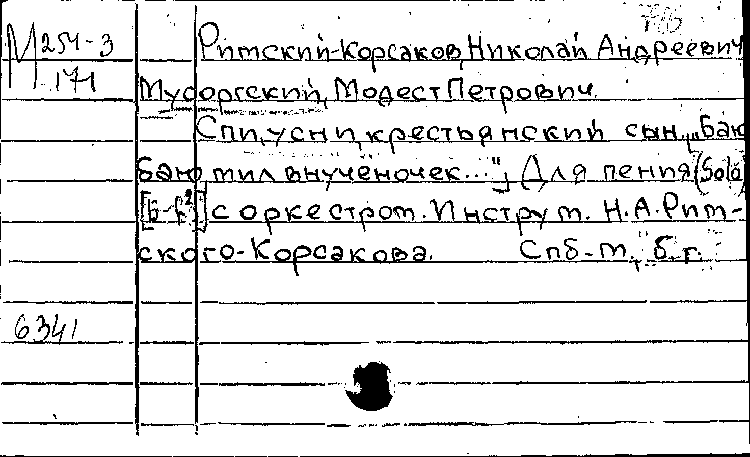 716
М 254-3
171
Римский-Корсаков, Николай Андреевич
Мусоргский, Модест Петрович.
Спи, усни, крестьянский сын. „Баю
баю, мил внучёночек..."; Для пения (Solo)
с оркестром. Инструм. Н.А. Рим-
ского-Корсакова. Спб.-М., б.г.
6341